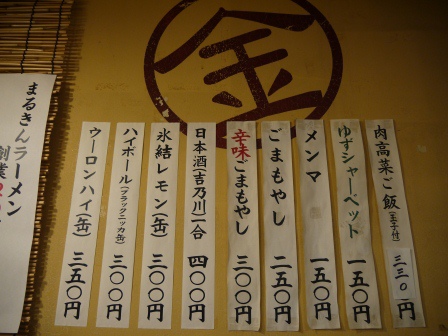 金
肉高菜ご飯(玉子付)三三〇円
ゆずシャーベット 一五〇円
メンマ 一五〇円
ごまもやし 二五〇円
辛味ごまもやし 三〇〇円
日本酒(吉乃川)一合 四〇〇円
氷結レモン(缶) 三〇〇円
ハイボール(ブラックニッカ缶) 三〇〇円
ウーロンハイ(缶) 三五〇円
まるきんラーメン
創業